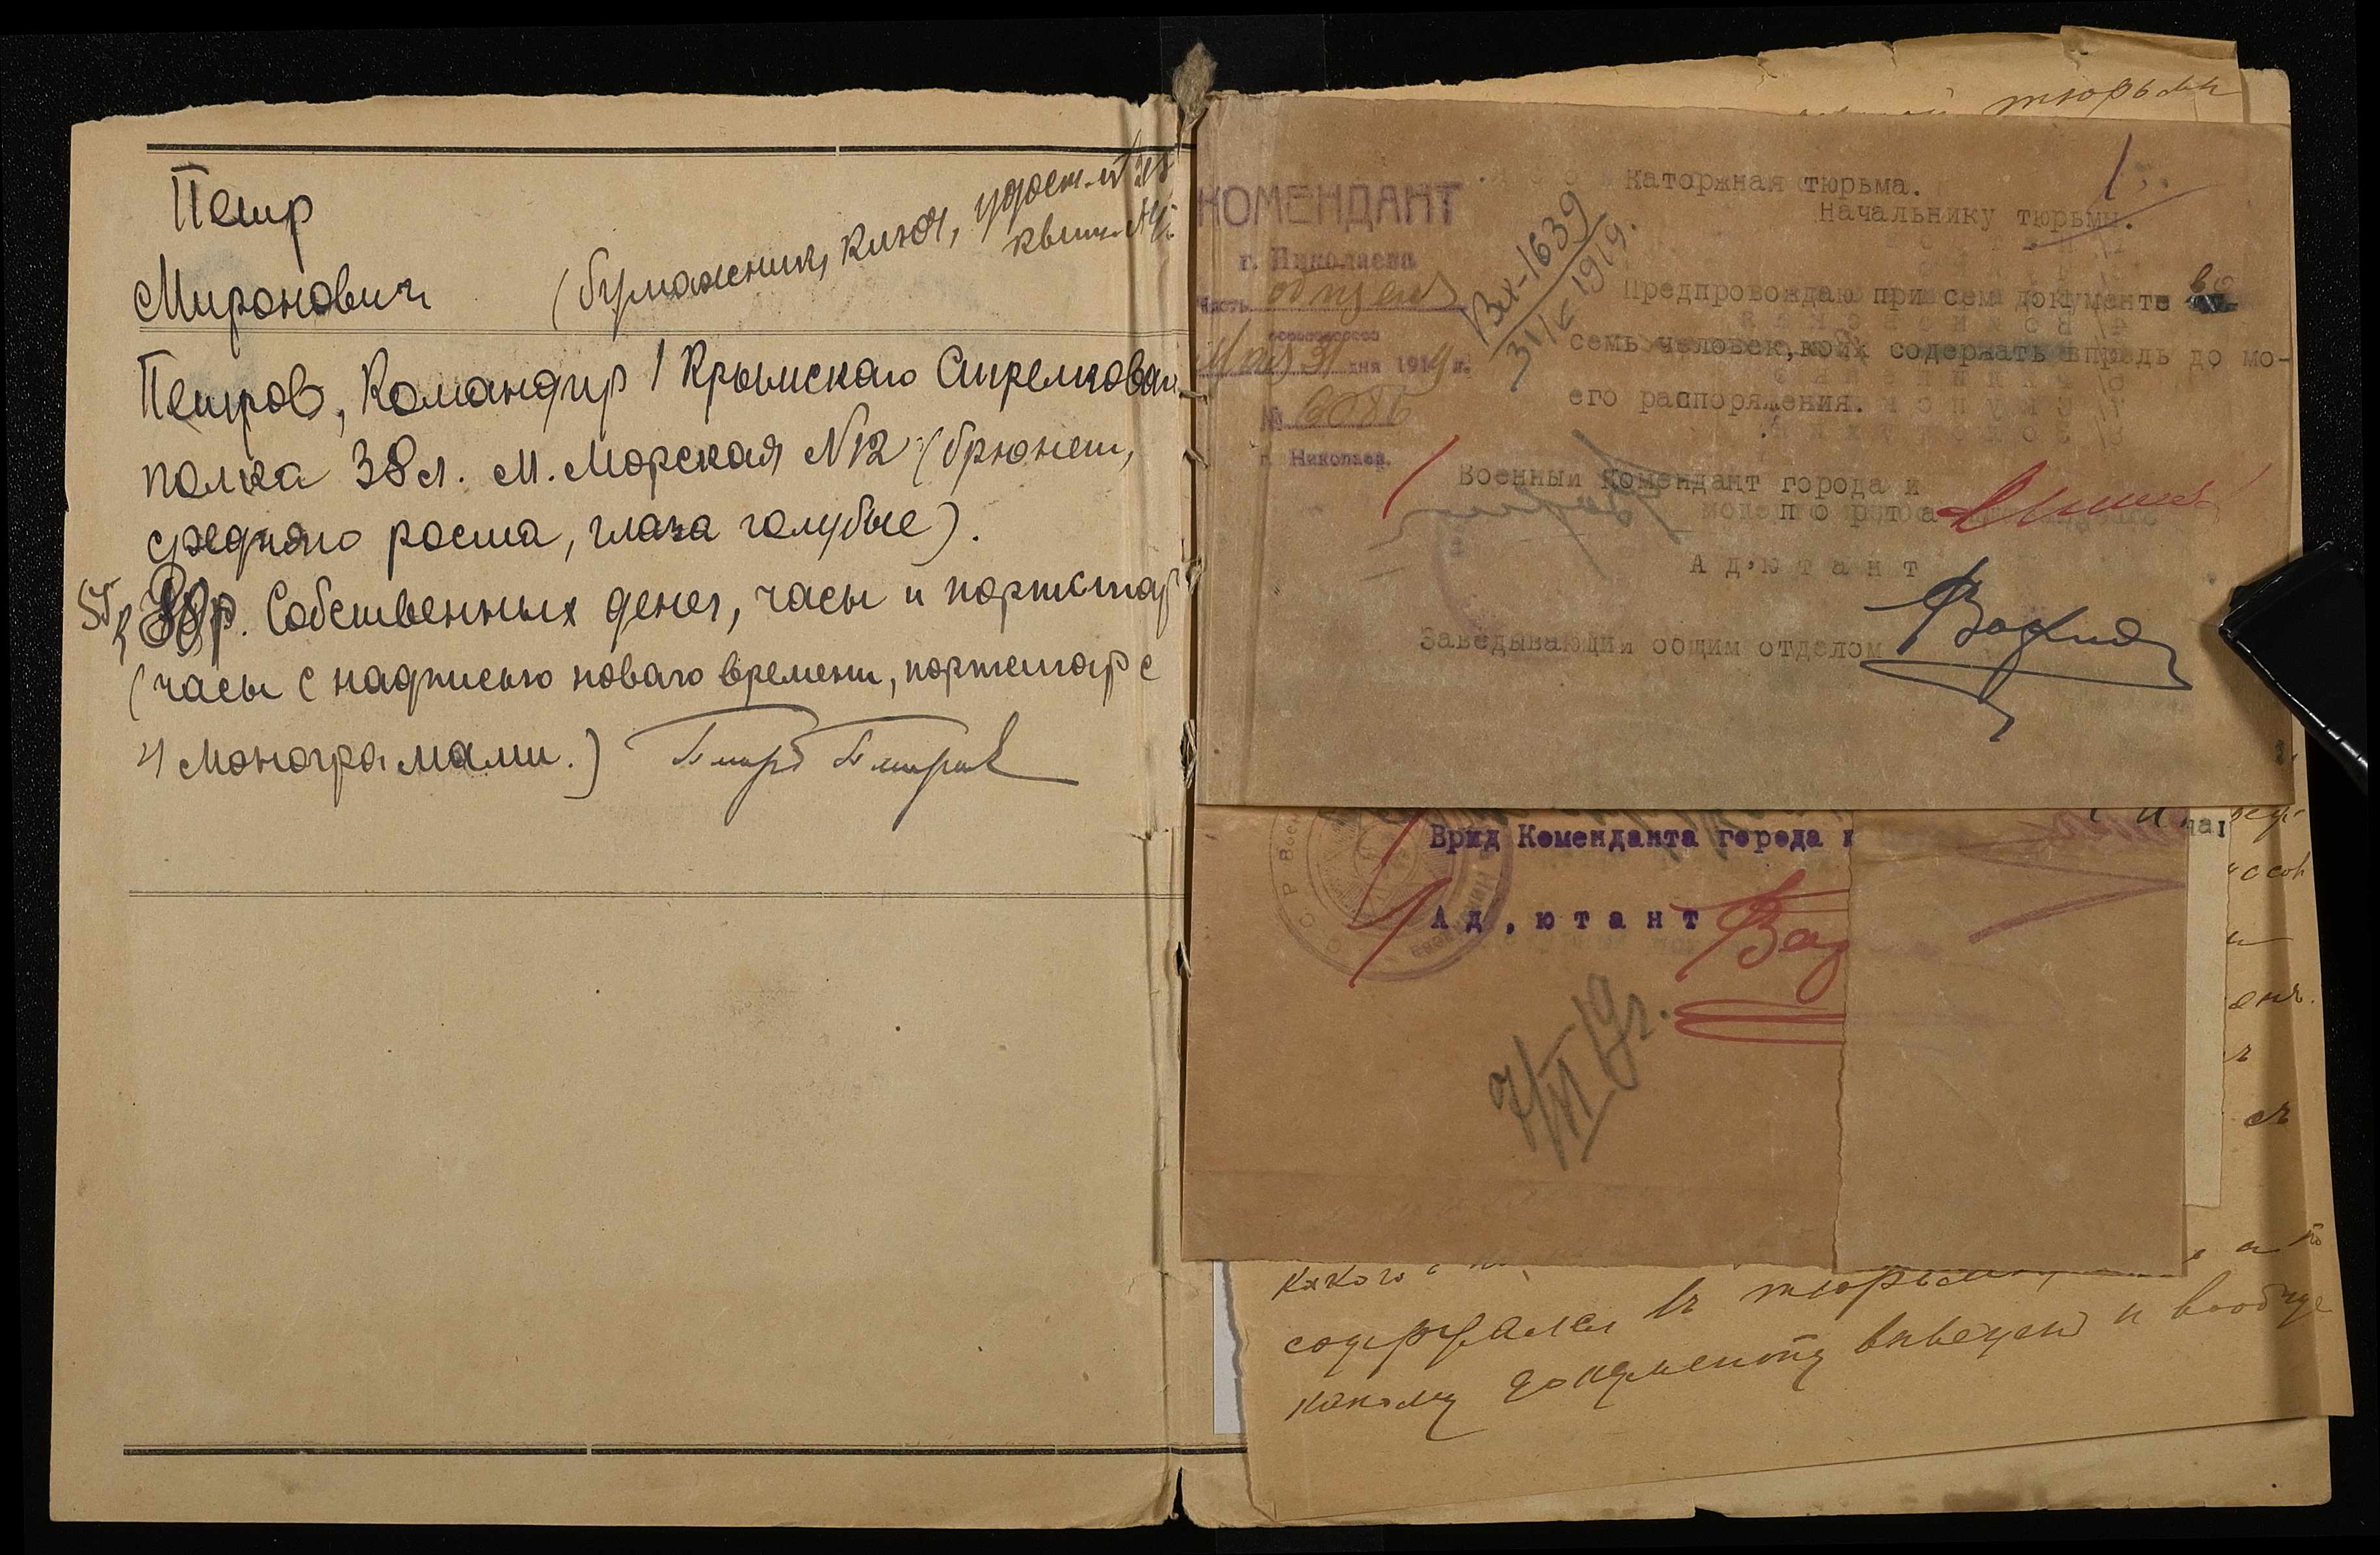 Петр
Миронович
(бумажник, ключ, удост.
Петров, Командир 1 Крымскаго Стрелковаго
полка 38 л. М. Морская N12 (брюнет,
средняго роста, глаза голубые).
р. Собственных денег, часы и портсигар
(часы с надписью новаго времени, портсигар с
4 монограмами.) Петр Петров
тюрьмы
КОМЕНДАНТ
г. Николаева
Часть общая
Мая 31 дня 1919 г.
№ 6086
г. Николаев.
Вх-1639
31/V 1919.
Каторжная тюрьма.
Начальнику тюрьмы.
Предпровождаю при сем документе во
семь человек, коих содержать впредь до мо-
его распоряжения.
Военный Комендант города и
порта
Ад'ютант
Заведывающий общим отделом
Врид Коменданта города и
Ад,ютант
7/VI 19 г.
какого
содержался въ тюрьме
какому документу выведен и вообще